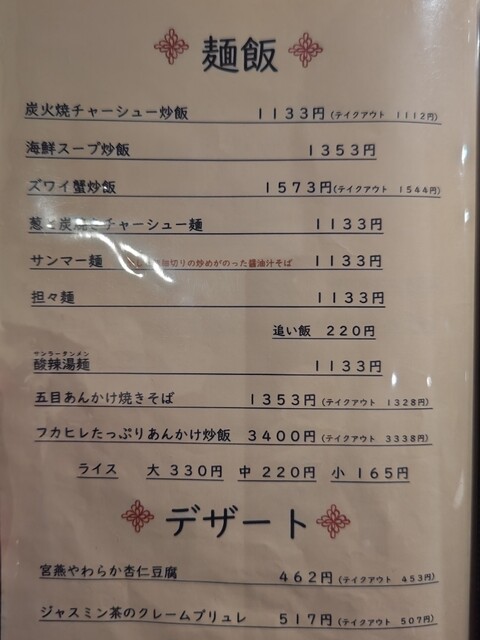 麺飯
炭火焼チャーシュー炒飯 1133円(テイクアウト 1112円)
海鮮スープ炒飯 1353円
ズワイ蟹炒飯 1573円(テイクアウト 1544円)
葱と炭焼きチャーシュー麺 1133円
サンマー麺 細切りの炒めがのった醤油汁そば 1133円
担々麺 1133円
追い飯 220円
サンラータンメン
酸辣湯麺 1133円
五目あんかけ焼きそば 1353円(テイクアウト 1328円)
フカヒレたっぷりあんかけ炒飯 3400円(テイクアウト 3338円)
ライス 大 330円 中 220円 小 165円
デザート
宮燕やわらか杏仁豆腐 462円(テイクアウト 453円)
ジャスミン茶のクレームブリュレ 517円(テイクアウト 507円)